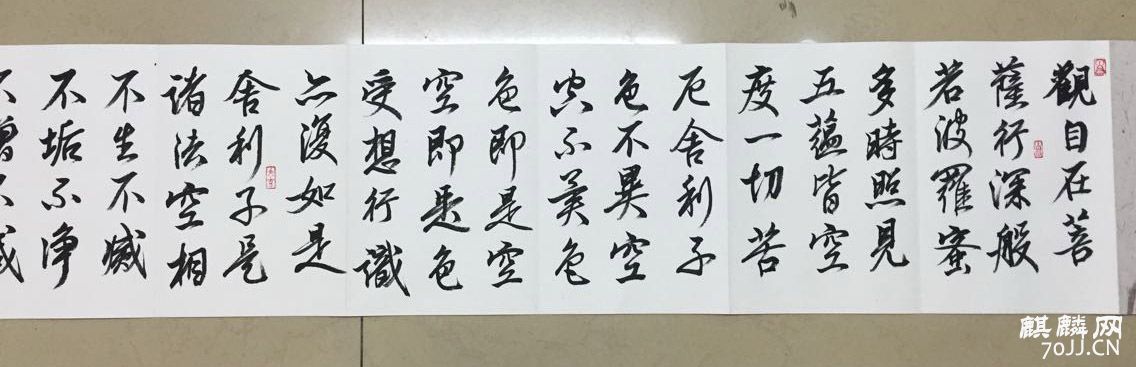 觀自在菩
薩行深般
若波羅蜜
多時照見
五蘊皆空
度一切苦
厄舍利子
色不異空
空不異色
色即是空
空即是色
受想行識
亦復如是
舍利子是
諸法空相
不生不滅
不垢不淨
不增不減
麒麟网
70JJ.CN